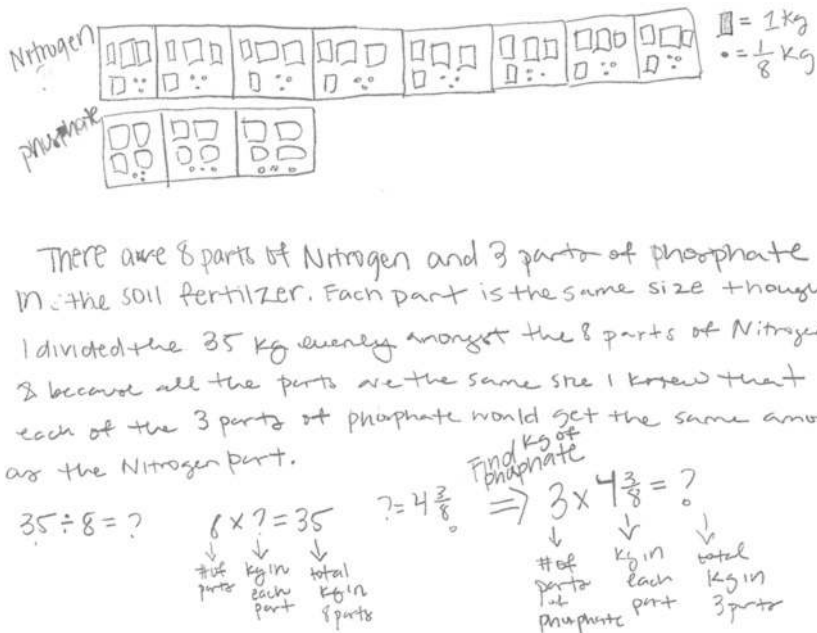 Nitrogen
▯ = 1 kg
• = 1/8 kg
phosphate
There are 8 parts of Nitrogen and 3 parts of phosphate
in the soil fertilzer. Each part is the same size though
I divided the 35 kg evenly amongst the 8 parts of Nitrogen
& because all the parts are the same size I knew that
each of the 3 parts of phosphate would get the same amo
as the Nitrogen part.
Find kg of
phaphate
35 ÷ 8 = ? 8 × ? = 35 ? = 4 3/8 ⇒ 3 × 4 3/8 = ?
# of parts
kg in each part
total kg in 8 parts
# of parts of phosphate
kg in each part
total kg in 3 parts